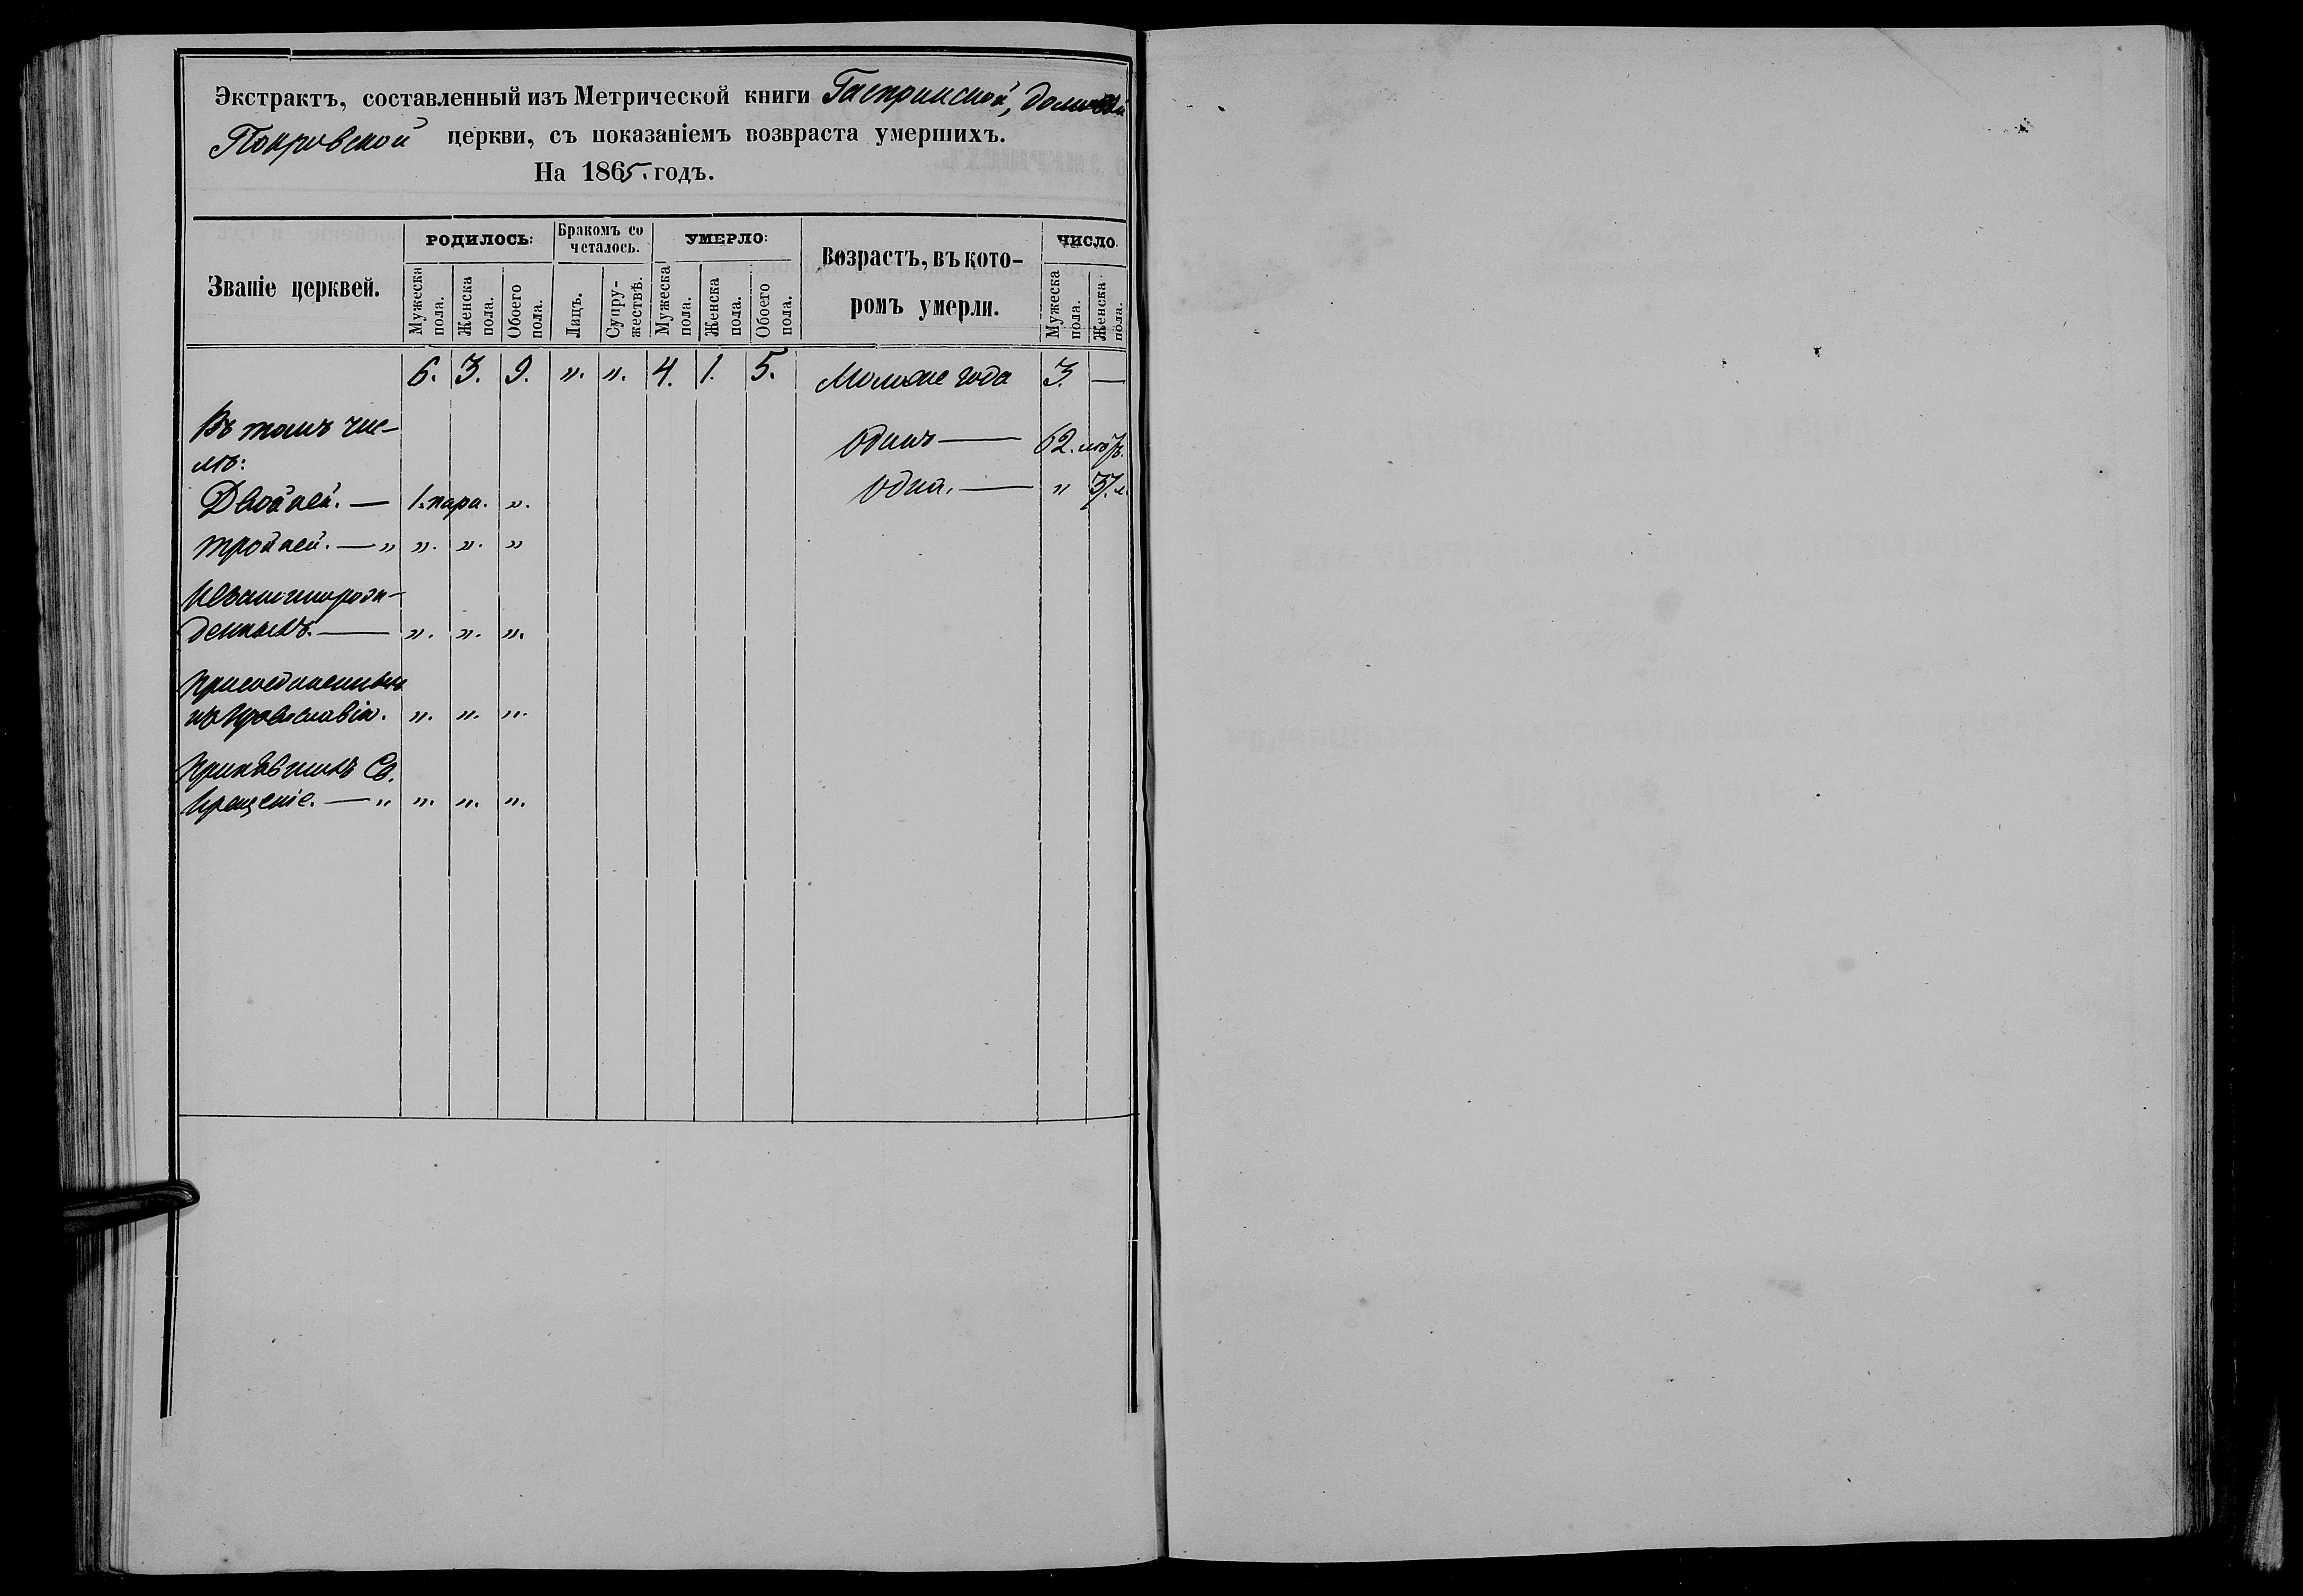 Экстрактъ, составленный изъ Метрической книги Гаспринской, домовой
Покровской церкви, съ показаніемъ возвраста умершихъ.
На 1865. годъ.
Званіе церквей.
РОДИЛОСЬ:
Мужеска пола.
Женска пола.
Обоего пола.
Бракомъ со
четалось.
Лицъ.
Супру-
жествѣ.
УМЕРЛО:
Мужеска пола.
Женска пола.
Обоего пола.
Возрастъ, въ кото-
ромъ умерли.
ЧИСЛО.
Мужеска пола.
Женска пола.
6. 3. 9. ". ". 4. 1. 5. Моложе года 3. —
Въ томъ чис-
лѣ:
Одинъ — 62. лѣтъ.
Двойней. — 1. пара. ".
Одна. — " 37. л.
Тройней. — " ". ". "
Незаконнорож-
денныхъ. — ". ". ".
Присоединенныхъ
къ Православію. ". ". ".
Принявшихъ Св.
Крещеніе. — " ". ". ".